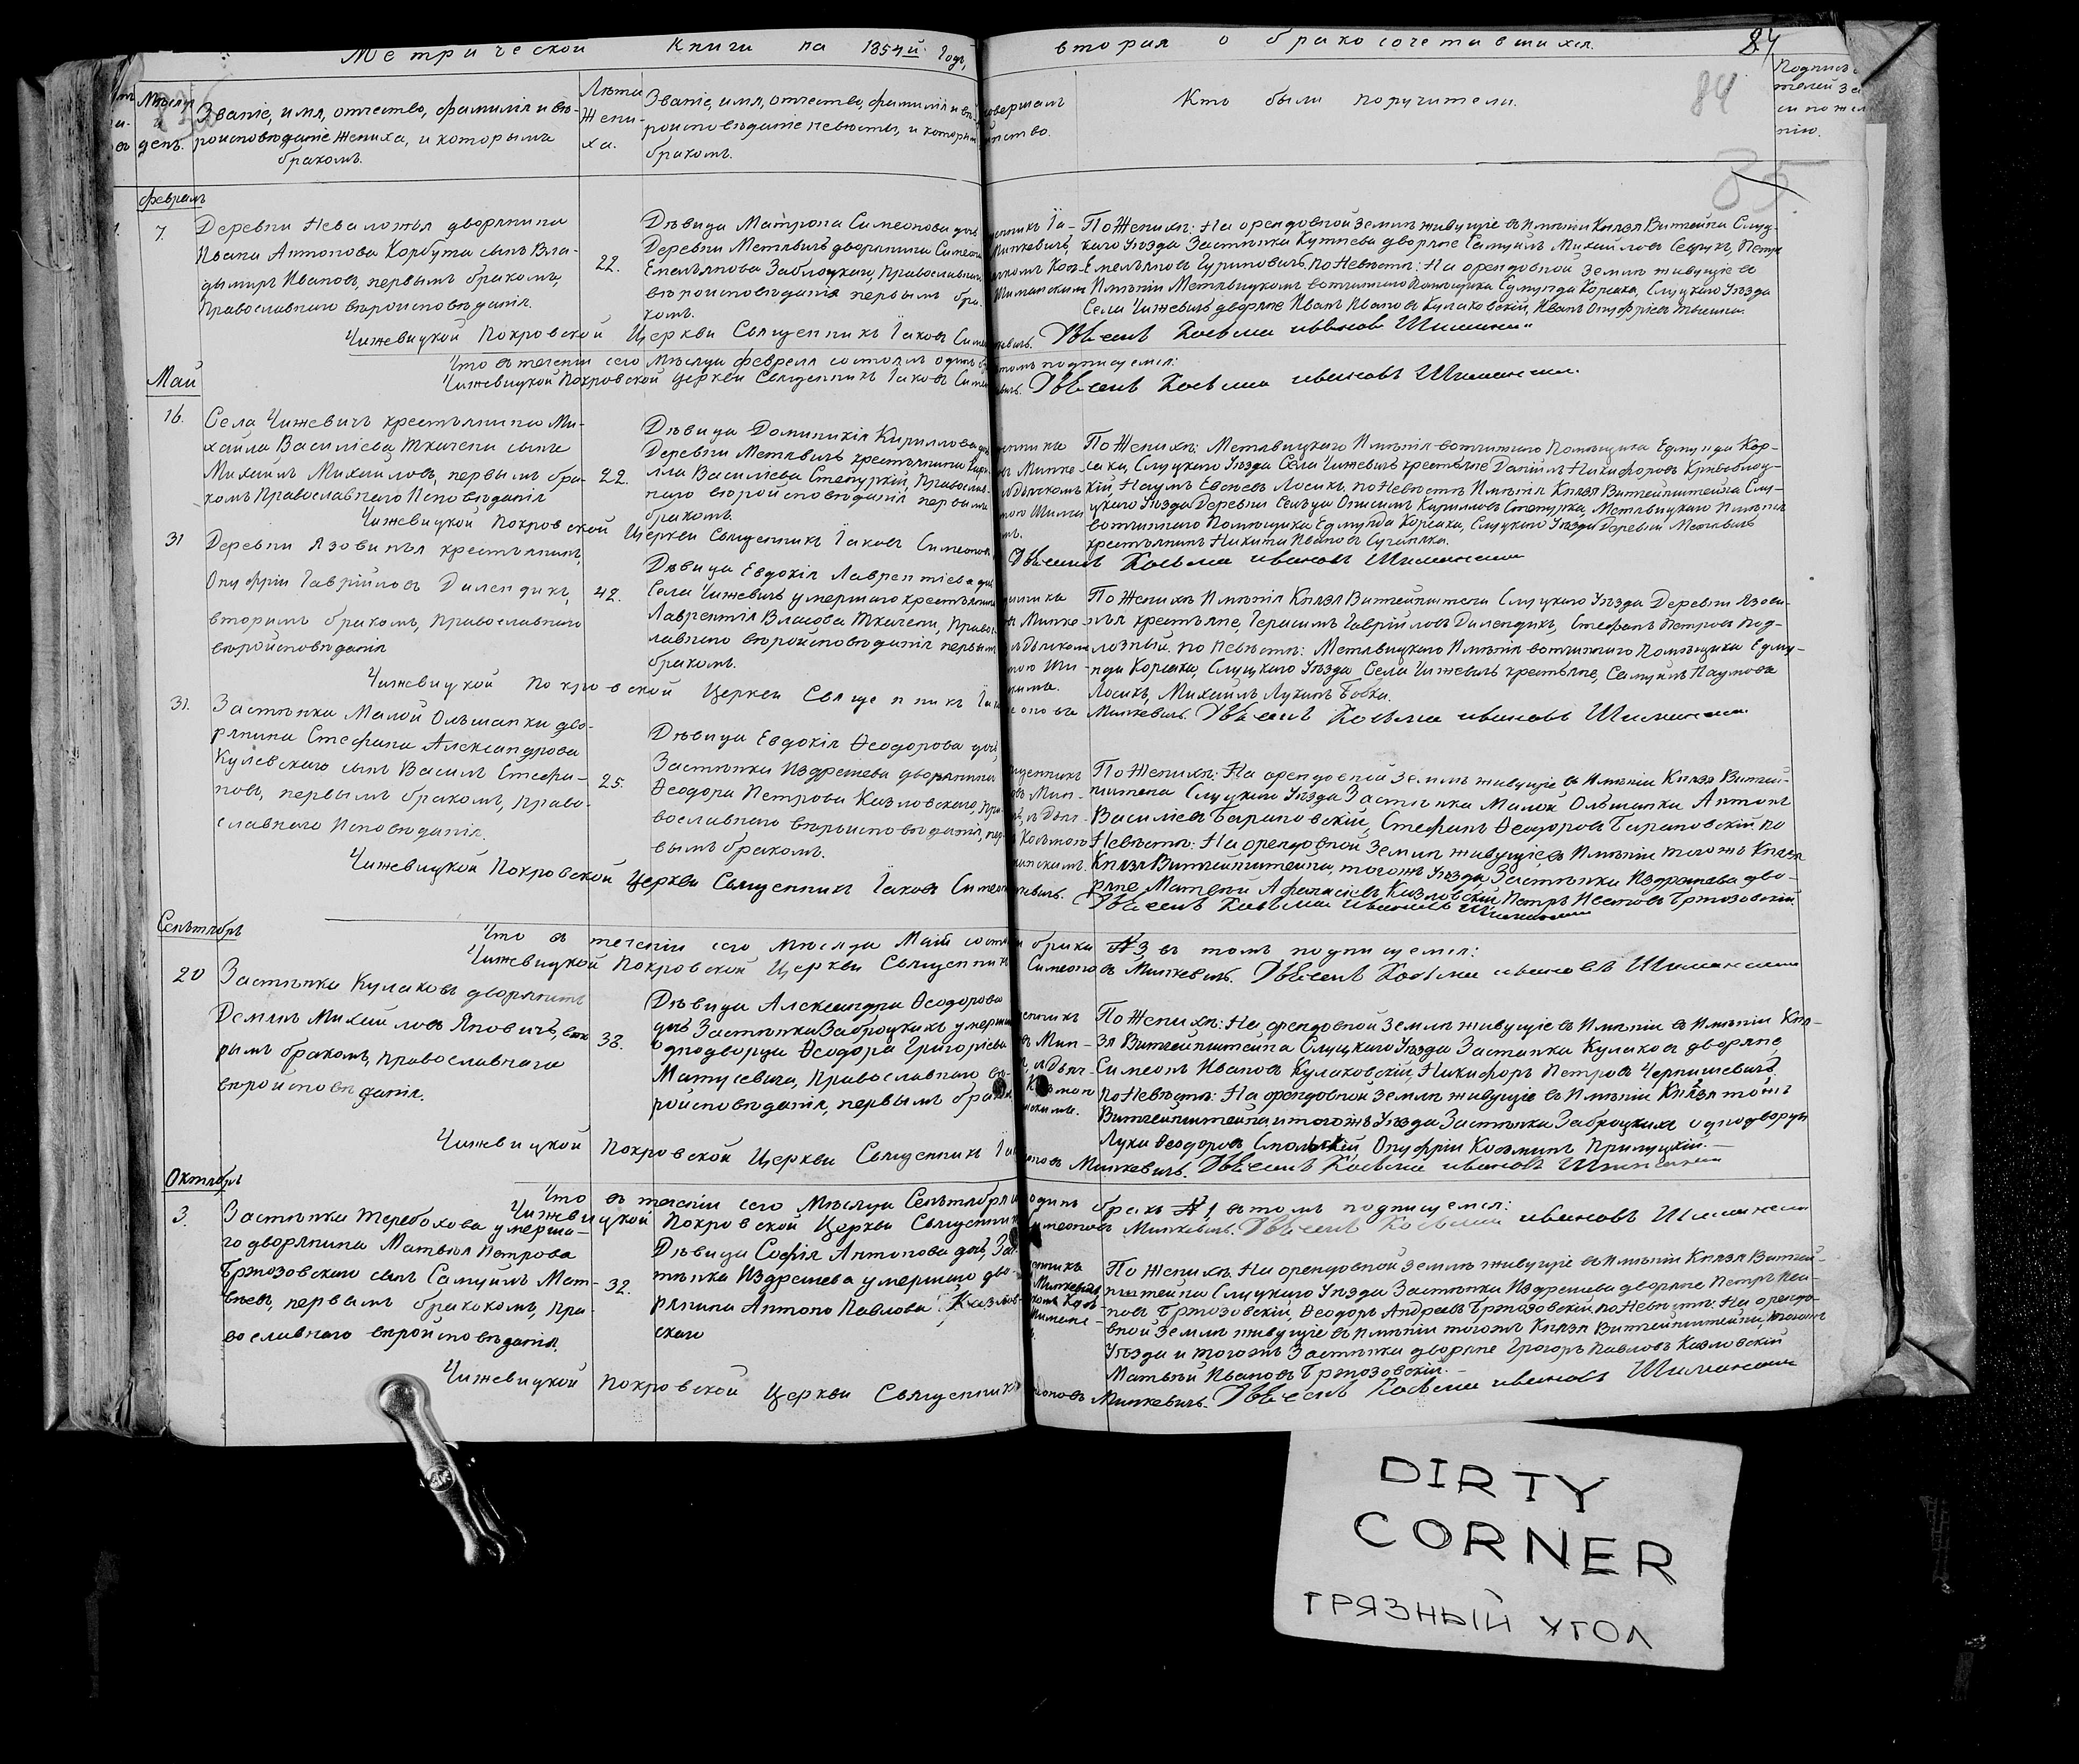 Метрической Книги на 1854й Годъ, вторая о бракосочетавшихся.
84
84
85
Мѣсяцъ и день.
Званіе, имя, отчество, фамилія и вѣ-
роисповѣданіе Жениха, и которымъ
бракомъ.
Лѣта
Жени-
ха.
Званіе, имя, отчество, фамилія и вѣ-
роисповѣданіе невѣсты, и которымъ
бракомъ.
Кто были поручители.
Февраль
7.
Деревни Неволожъя дворянина
Ивана Антонова Корбута сынъ Вла-
дымиръ Ивановъ, первымъ бракомъ,
Православнаго вѣроисповѣданія.
22.
Дѣвица Матрона Симеонова дочь
Деревни Метявичъ дворянина Симеона
Емельянова Заблоцкаго, Православнаго
вѣроисповѣданія первымъ бра-
комъ.
По Женихѣ: На орендовной землѣ живущіе въ Имѣніи Князя Витгейна Слуц-
каго Уѣзда Застѣнка Кутнева дворяне Самуилъ Михайловъ Севрукъ, Петръ
Емельяновъ Гуриновичъ. по Невѣстѣ: На орендовной землѣ живущіе в
Имѣніи Метявицкомъ вотчиннаго Помѣщика Едмунда Корсака, Слуцкаго Уѣзда
Села Чижевичъ дворяне Иванъ Ивановъ Кулаковскій, Иванъ Онуфріевъ
Чижевицкой Покровской Церкви Священникъ Іаковъ
Дьячекъ Косьма ивановъ Шимански
Что въ теченіи сего Мѣсяца февраля состоялъ одинъ
томъ подписуемся:
Чижевицкой Покровской Церкви Священникъ Іаковъ
Дьячекъ Косьма ивановъ Шимански
Май
16.
Села Чижевичъ крестьянина Ми-
хаила Василіева Ткачени сынъ
Михаилъ Михаиловъ, первымъ бра-
комъ Православнаго Исповѣданія
22.
Дѣвица Доминикія Кириллова дочь
Деревни Метявичъ крестьянина Кири-
лла Василіева Степуркій, Православ-
наго вѣроисповѣданія первымъ
бракомъ.
По Женихѣ: Метявицкаго Имѣнія вотчиннаго Помѣщика Едмунда Кор-
сака, Слуцкаго Уѣзда Села Чижевичъ крестьяне Даніилъ Никифоровъ Кривоблоц-
кій, Наумъ Евсѣевъ Лосикъ. по Невѣстѣ Имѣнія Князя Витгейнштейна Слу-
цкаго Уѣзда Деревни Онисимъ Кириловъ Степурка, Метявицкаго Имѣнія
вотчиннаго Помѣщика Едмунда Корсака, Слуцкаго Уѣзда Деревни Метявичъ
крестьянинъ Никита Ивановъ
Чижевицкой Покровской Церкви Священникъ Іаковъ Симеонов
Дьячекъ Косьма ивановъ Шимански
31
Деревни Язовиняя крестьянинъ,
Онуфрій Гаврійловъ Дилендикъ,
вторымъ бракомъ, Православнаго
вѣройсповѣданія
42.
Дѣвица Евдокія Лаврентіева дочь
Села Чижевичъ умершаго крестьянина
Лаврентія Власова Ткачени, Право-
славнаго вѣройсповѣданія первымъ
бракомъ.
По Женихѣ Имѣнія Князя Витгейнштена Слуцкаго Уѣзда Деревни Язови-
няя крестьяне, Герасимъ Гаврійловъ Дилендикъ, Стефанъ Петровъ Под-
лозный. по Невѣстѣ: Метявицкаго Имѣнія вотчиннаго Помѣщика Едму-
нда Корсака, Слуцкаго Уѣзда Села Чижевичъ крестьяне, Самуилъ Наумовъ
Лосикъ, Михаилъ Лукинъ Бобка.
Чижевицкой Покровской Церкви Священникъ
Минкевичъ. Дьячекъ Косьма ивановъ Шимански
31.
Застѣнка Малой Ольшанки дво-
рянина Стефана Александрова
Кулевскаго сынъ Василъ Стефа-
новъ, первымъ бракомъ, Право-
славнаго Исповѣданія.
25.
Дѣвица Евдокія Ѳеодорова дочь,
Застѣнка Издрешева дворянина
Ѳеодора Петрова Казловскаго, Пра-
вославнаго вѣроисповѣданія, пер-
вымъ бракомъ.
По Женихѣ: На орендовной землѣ живущіе въ Имѣніи Князя Витгей-
нштена Слуцкаго Уѣзда Застѣнка Малой Ольшанки Антонъ
Василіевъ Барановскій, Стефанъ Ѳеодоровъ Барановскій. По
Невѣстѣ: На орендовной землѣ живущіе въ Имѣніи тогожъ Князя
Князя Витгейнштейна, тогожъ Уѣзда, Застѣнка Издрешева дво-
ряне, Матвѣй Афанасіевъ Казловскій, Петръ Ивановъ Бржозовскій.
Чижевицкой Покровской Церкви Священникъ Іаковъ
Дьячекъ Косьма ивановъ Шимански
Что въ теченіи сего Мѣсяца Май
брака № 3 въ томъ подписуемся:
Чижевицкой Покровской Церкви Священник
Симеоновъ Минкевичъ. Дьячекъ Косьма ивановъ Шимански
Сентябрь
20
Застѣнка Кулаковъ дворянинъ
Демянъ Михайловъ Яновичъ, вто-
рымъ бракомъ, Православнаго
вѣройсповѣданія.
38.
Дѣвица Александра Ѳеодорова
дочь Застѣнка Заброцкихъ умершаго
Однодворца Ѳеодора Григоріева
Матусевича, Православнаго вѣ-
ройсповѣданія, первымъ бракомъ
По Женихѣ: На орендовной землѣ живущіе въ Имѣніи въ Имѣніи Кня-
зя Витгейнштейна Слуцкаго Уѣзда Застѣнка Кулаковъ дворяне
Симеонъ Ивановъ Кулаковскій, Никифоръ Петровъ Чернишевичъ.
по Невѣстѣ: На орендовной землѣ живущіе въ Имѣніи Князя тожъ
Витгейнштейна и тогожъ Уѣзда Застѣнка Заброцкихъ однодворцы
Лука Ѳеодоровъ Смольскій, Онуфрій Козминъ Прилуцкій.
Чижевицкой Покровской Церкви Священникъ
Минкевичъ. Дьячекъ Косьма ивановъ Шимански
Октябрь
Что въ теченіи сего Мѣсяца Сентября одинъ бракъ № 1, въ томъ подписуемся:
Чижевицкой Покровской Церкви Священникъ
Минкевичъ. Дьячекъ Косьма ивановъ Шимански
3.
Застѣнка Теребохова умерша-
го дворянина Матвѣя Петрова
Бржозовскаго сынъ Самуилъ Мат-
вѣевъ, первымъ бракокомъ, Пра-
вославнаго вѣройсповѣданія.
32.
Дѣвица Софія Антонова дочь, Зас-
тѣнка Издрешева умершаго дво-
рянина Антона Павлова Казлов-
скаго
По Женихѣ. На орендовной землѣ живущіе въ Имѣніи Князя Витгей-
нштейна Слуцкаго Уѣзда Застѣнка Издрешева дворяне Петръ Ива-
новъ Бржозовскій, Ѳеодоръ Андреевъ Бржозовскій. по Невѣстѣ: На орендо-
вной землѣ живущіе въ Имѣніи тогожъ Князя Витгейнштейна, тогожъ
Уѣзда и тогожъ Застѣнка дворяне Григоръ Павловъ Казловскій
Матвѣй Ивановъ Бржозовскій.
Чижевицкой Покровской Церкви Священникъ
Минкевичъ. Дьячекъ Косьма ивановъ Шимански
DIRTY
CORNER
ГРЯЗНЫЙ УГОЛ